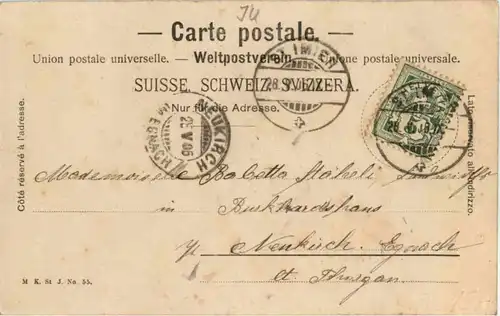 JU
— Carte postale. —
Union postale universelle. — Weltpostverein. — Unione postale universale.
SUISSE. SCHWEIZ. SVIZZERA.
Nur für die Adresse.
Côté réservé à l'adresse.
Lato riservato all'indirizzo.
ST. IMIER
28. V. 06
NEUKIRCH
29 V 06
(EGNACH)
5
Mademoiselle Babette Stäheli
in Burkhardshaus
p/ Neukirch. Egnach
Ct. Thurgau.
M K. St J. No. 55.